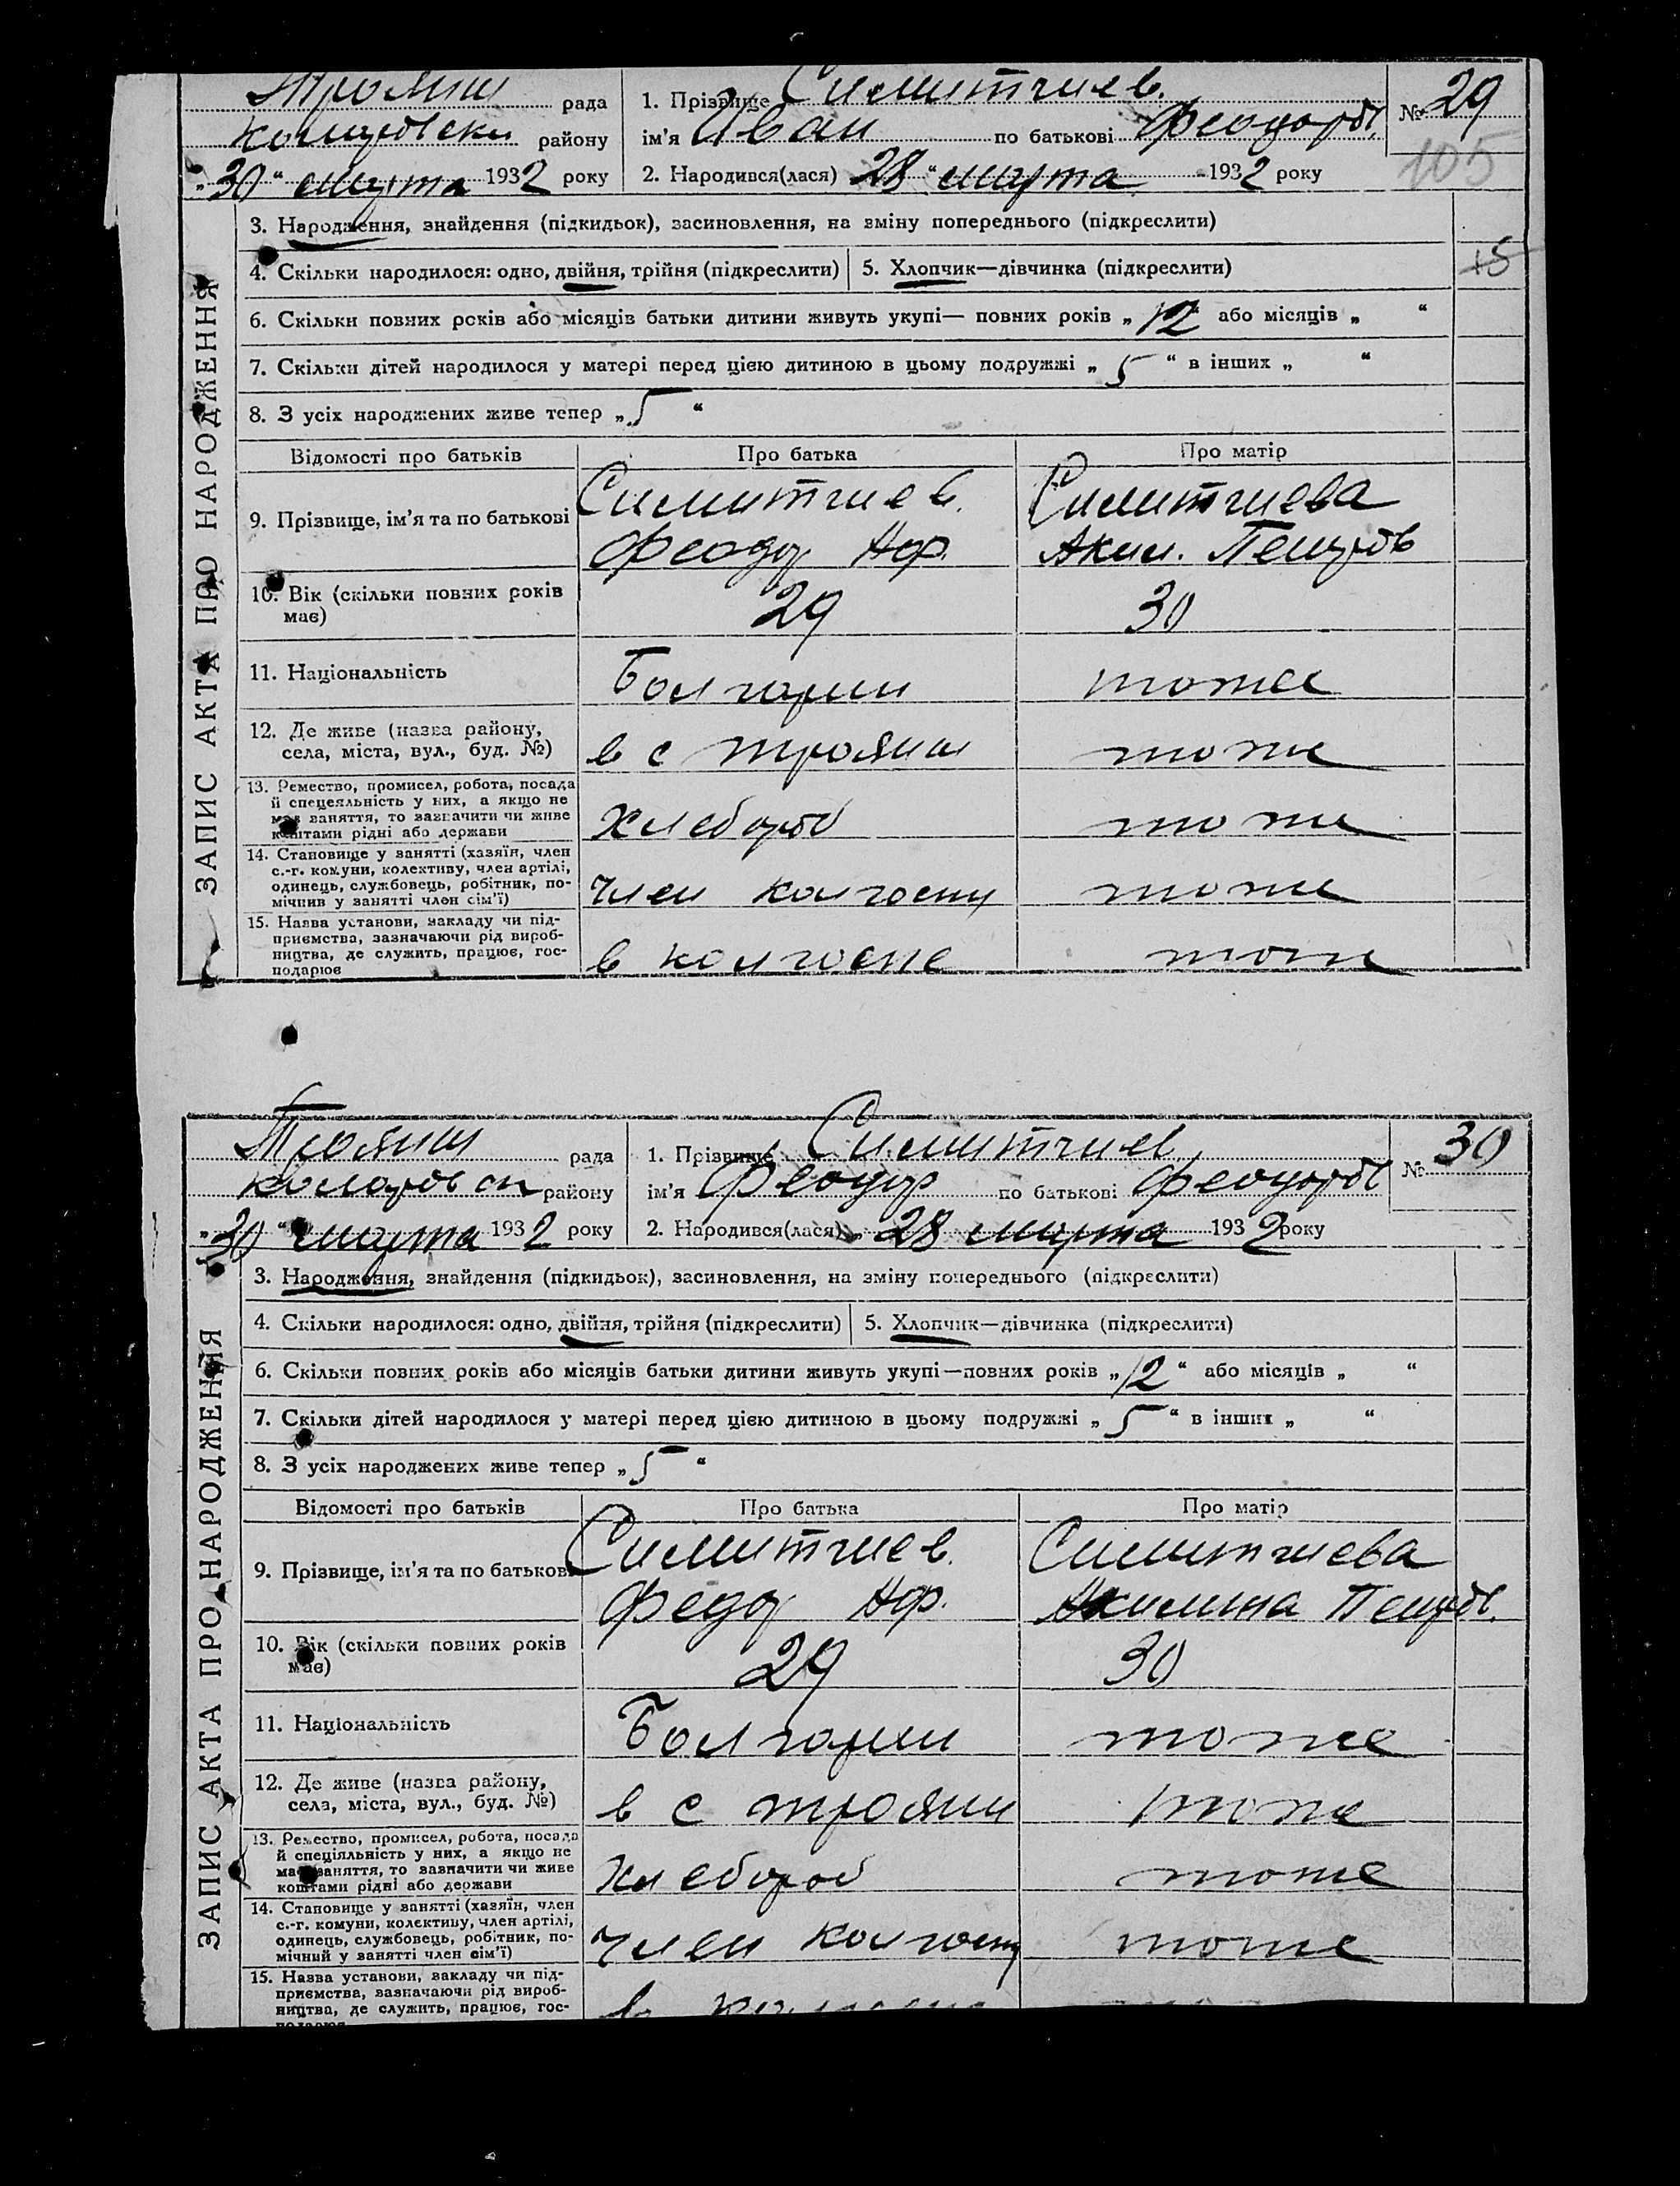 Трояни рада
Коларовски району
„30“ марта 1932 року
1. Прізвище Симитчиев.
ім'я Иван по батькові Феодоров.
2. Народився(лася) 28 „ марта 1932 року
№ 29
105
3. Народження, знайдення (підкидьок), засиновлення, на зміну попереднього (підкреслити)
4. Скільки народилося: одно, двійня, трійня (підкреслити) 5. Хлопчик—дівчинка (підкреслити)
15
6. Скільки повних років або місяців батьки дитини живуть укупі— повних років „ 12 або місяців „ “
7. Скільки дітей народилося у матері перед цією дитиною в цьому подружжі „ 5 “ в інших „ “
8. З усіх народжених живе тепер „ 5 “
Відомості про батьків Про батька Про матір
9. Прізвище, ім'я та по батькові
Симитчиев. Симитчиева
Феодор Аф. Аким. Петров
10. Вік (скільки повних років
має)
29 30
11. Національність
Болгарин тоже
12. Де живе (назва району,
села, міста, вул., буд. №)
в с Трояни тоже
13. Ремество, промисел, робота, посада
й спецеяльність у них, а якщо не
має заняття, то зазначити чи живе
коштами рідні або держави
Хлебороб тоже
14. Становище у занятті (хазяїн, член
с.-г. комуни, колективу, член артілі,
одинець, службовець, робітник, по-
мічник у занятті член сім'ї)
член колгоспу тоже
15. Назва установи, закладу чи під-
приємства, зазначаючи рід вироб-
ництва, де служить, працює, гос-
подарює
в колгоспе тоже
ЗАПИС АКТА ПРО НАРОДЖЕННЯ
Трояни рада
Коларовск району
„30“ марта 1932 року
1. Прізвище Симитчиев
ім'я Феодор по батькові Феодоров
2. Народився(лася) „ 28 марта 1932 року
№ 30
3. Народження, знайдення (підкидьок), засиновлення, на зміну попереднього (підкреслити)
4. Скільки народилося: одно, двійня, трійня (підкреслити) 5. Хлопчик—дівчинка (підкреслити)
6. Скільки повних років або місяців батьки дитини живуть укупі—повних років „12“ або місяців „ “
7. Скільки дітей народилося у матері перед цією дитиною в цьому подружжі „ 5 “ в інших „ “
8. З усіх народжених живе тепер „ 5 “
Відомості про батьків Про батька Про матір
9. Прізвище, ім'я та по батькові
Симитчиев. Симитчиева
Федор Аф. Акилина Петров.
10. Вік (скільки повних років
має)
29 30
11. Національність
Болгарин тоже
12. Де живе (назва району,
села, міста, вул., буд. №)
в с Трояни тоже
13. Ремество, промисел, робота, посада
й спеціяльність у них, а якщо не
має заняття, то зазначити чи живе
коштами рідні або держави
Хлебороб тоже
14. Становище у занятті (хазяїн, член
с.-г. комуни, колективу, член артілі,
одинець, службовець, робітник, по-
мічний у занятті член сім'ї)
член колгоспу тоже
15. Назва установи, закладу чи під-
приємства, зазначаючи рід вироб-
ництва, де служить, працює, гос-
подарює
в колгоспе
ЗАПИС АКТА ПРО НАРОДЖЕННЯ